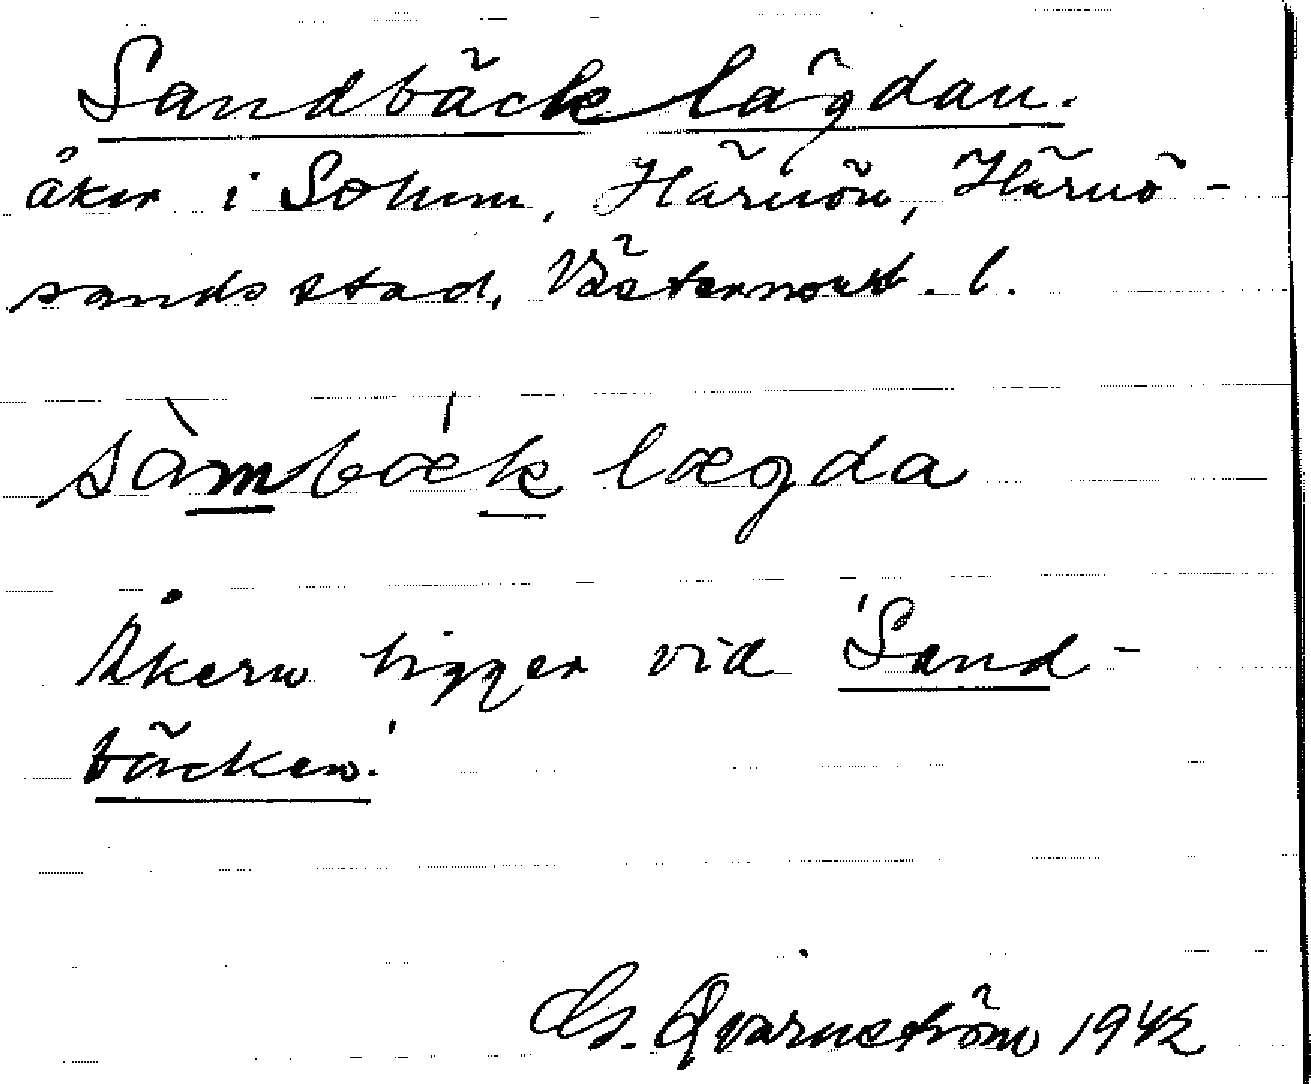 Sandbäcklägdan.
åker i Solum, Härnön, Härnö-
sands stad, Västernorrl. l.
sàmbǽk lægda
Åkern ligger vid 'Sand-
bäcken.'
G. Qvarnström 1942